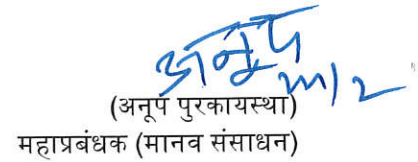 अनूप
22/2
(अनूप पुरकायस्था)
महाप्रबंधक (मानव संसाधन)